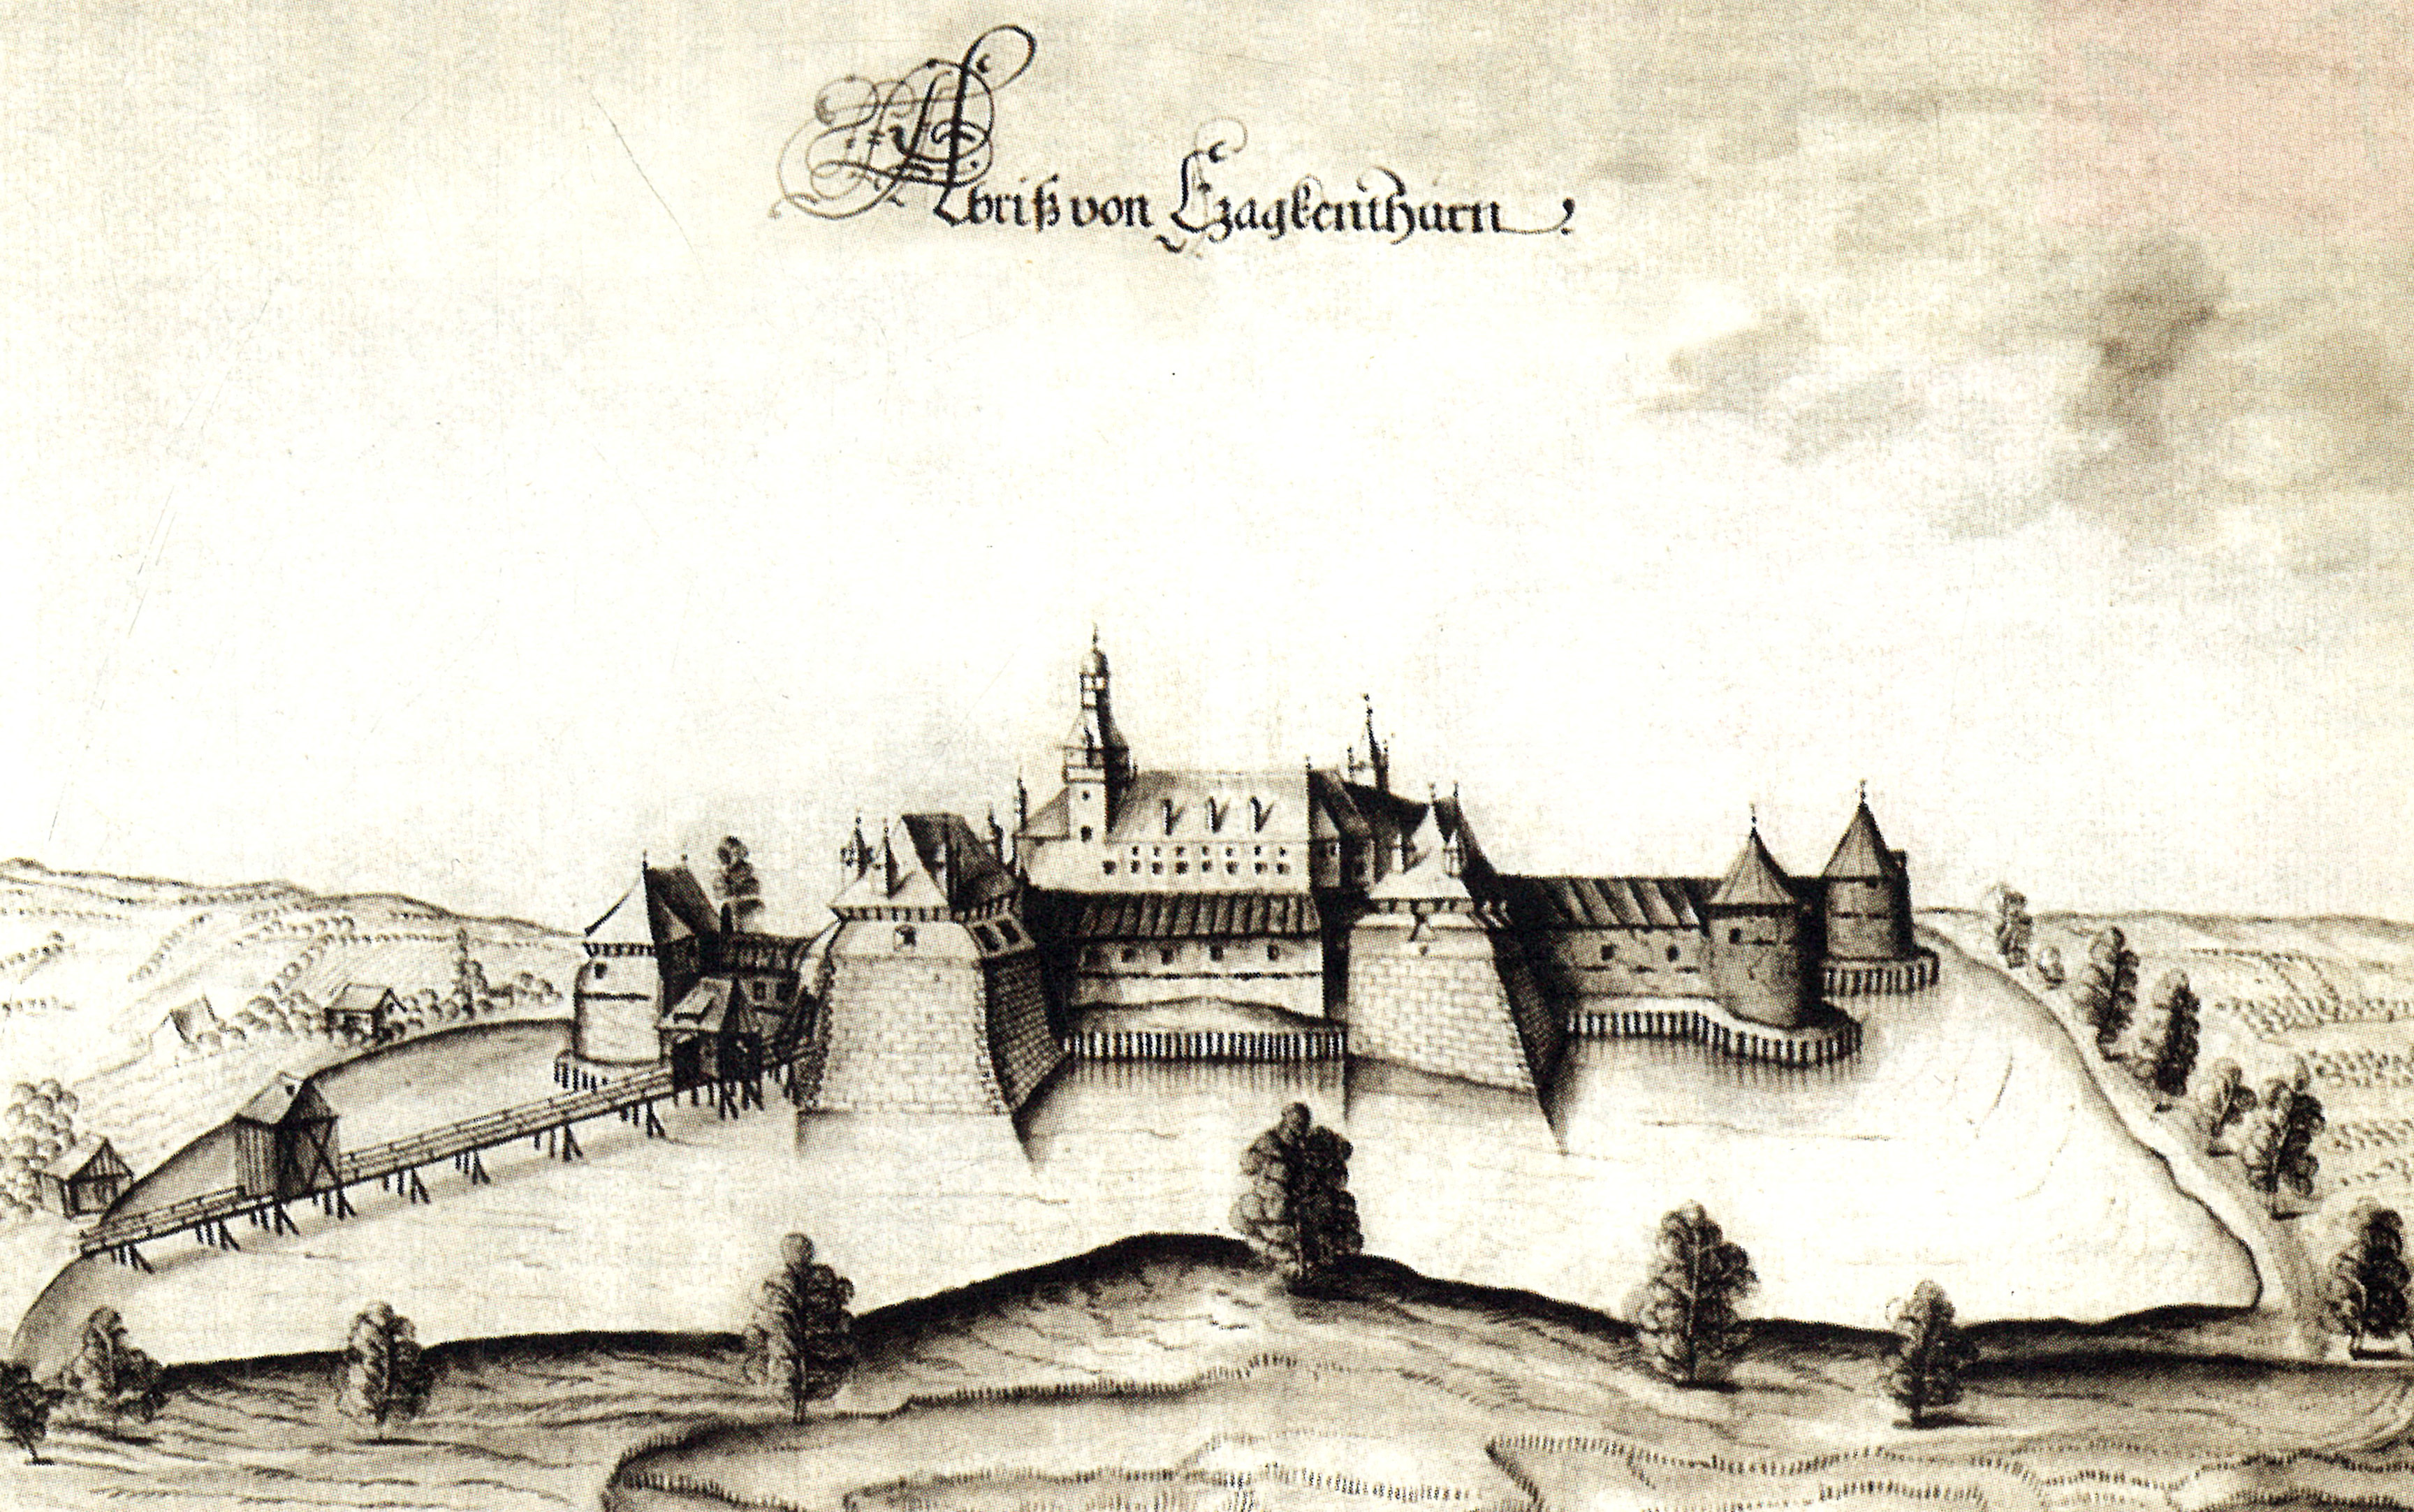 Abriß von Czagkenthurn